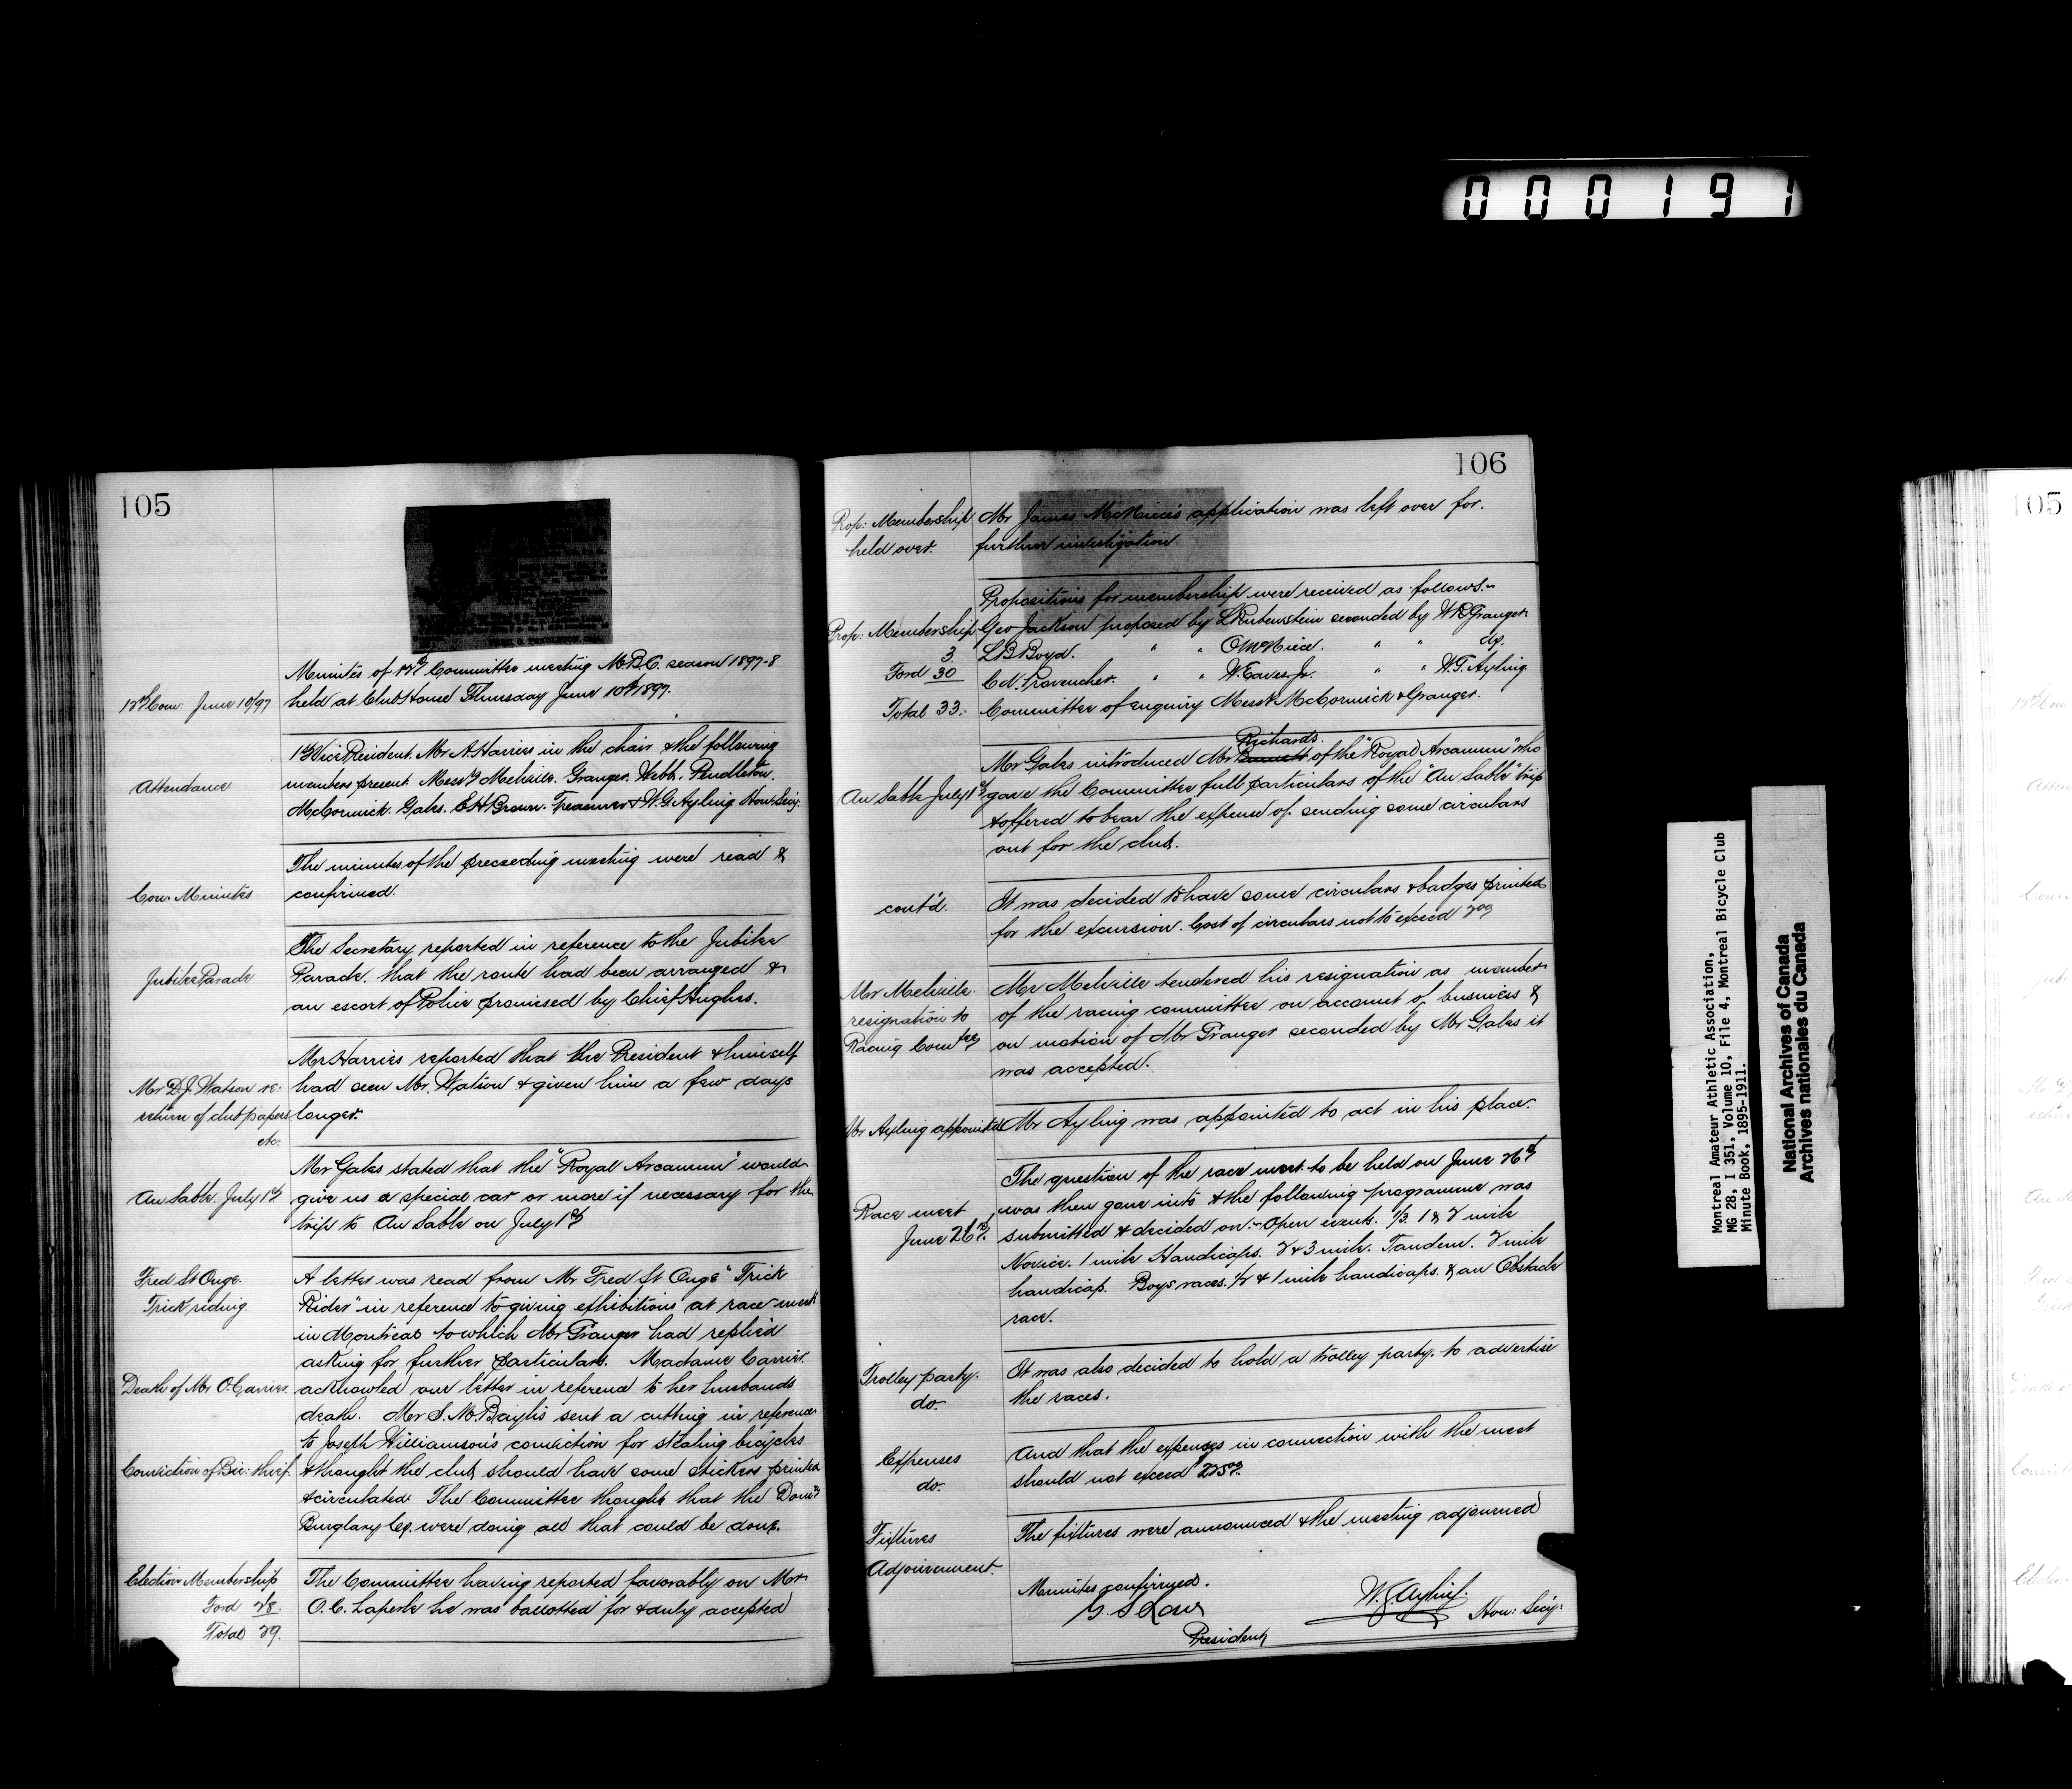 000191
105
12th Com: June 10/97
Minutes of 12th Committee meeting M.B.C. season 1897-8
held at Club House Thursday June 10th 1897.
Attendance
1st Vice President Mr A. Harries in the chair & the following
members present Messrs Melville. Granger. Webb. Pendleton.
McCormick. Gales. E.H. Brown. Treasurer & W.G. Ayling Hon: Secy.
Con: Minutes
The minutes of the preceeding meeting were read &
confirmed.
Jubilee Parade
The Secretary reported in reference to the Jubilee
Parade. that the route had been arranged &
an escort of Police promised by Chief Hughes.
Mr D.J. Watson re:
return of club papers
etc.
Mr Harries reported that the President & himself
had seen Mr. Watson & given him a few days
longer.
Au Sable July 1st
Mr Gales stated that the "Royal Arcanum" would
give us a special car or more if necessary for the
trip to Au Sable on July 1st
Fred St Onge.
Trick riding
A letter was read from Mr Fred St Onge "Trick
Rider" in reference to giving exhibitions at race meet
in Montreal to which Mr Granger had replied
asking for further particulars. Madame Carrier
Death of Mr O. Carrier
acknowled our letter in reference to her husbands
death. Mr S. M. Baylis sent a cutting in reference
to Joseph Williamson's conviction for stealing bicycles
Conviction of Bic: thief.
& thought the club should have some stickers printed
& circulated. The Committee thought that the Domn
Burglary Co. were doing all that could be done.
Election Membership
Ford 28.
Total 29.
The Committee having reported favorably on Mr
O. C. Laperle he was ballotted for & duly accepted
106
Prop: Membership
held over.
Mr James McNiece's application was left over for
further investigation
Propositions for membership were received as follows:-
Prop: Membership
3
Ford 30
Total 33.
Geo Jackson proposed by L Rubenstein seconded by W R Granger
L B Boyd. " " O McNiece. " " do.
C N. Provencher. " " W. Eaves Jr. " " W.G. Ayling
Committee of enquiry Messrs McCormick & Granger.
Au Sable July 1st
Richards.
Mr Gales introduced Mr of the "Royal Arcanum" who
gave the Committee full particulars of the "Au Sable" trip
& offered to bear the expense of sending some circulars
out for the club.
cont'd.
It was decided to have some circulars & badges printed
for the excursion. Cost of circulars not to exceed 2.00
Mr Melville
resignation to
Racing Comtee
Mr Melville tendered his resignation as member
of the racing committee on account of business &
on motion of Mr Granger seconded by Mr Gales it
was accepted.
Mr Ayling appointed
Mr Ayling was appointed to act in his place.
Race meet
June 26th.
The question of the race meet to be held on June 26th
was then gone into & the following programme was
submitted & decided on:- Open events. 1/3. 1 & 2 mile
Novice. 1 mile Handicaps. 2 & 3 mile. Tandem. 2 mile
handicap. Boys races. 1/2 & 1 mile handicaps. & an Obstacle
race.
Trolley party.
do.
It was also decided to hold a trolley party. to advertise
the races.
Expenses
do.
And that the expenses in connection with the meet
should not exceed $225.00
Fixtures
Adjournment.
The fixtures were announced & the meeting adjourned
Minutes confirmed.
President
W. G. Ayling.
Hon: Secy:
Montreal Amateur Athletic Association.
MG 28, I 351, Volume 10, File 4, Montreal Bicycle Club
Minute Book, 1895-1911.
National Archives of Canada
Archives nationales du Canada
105